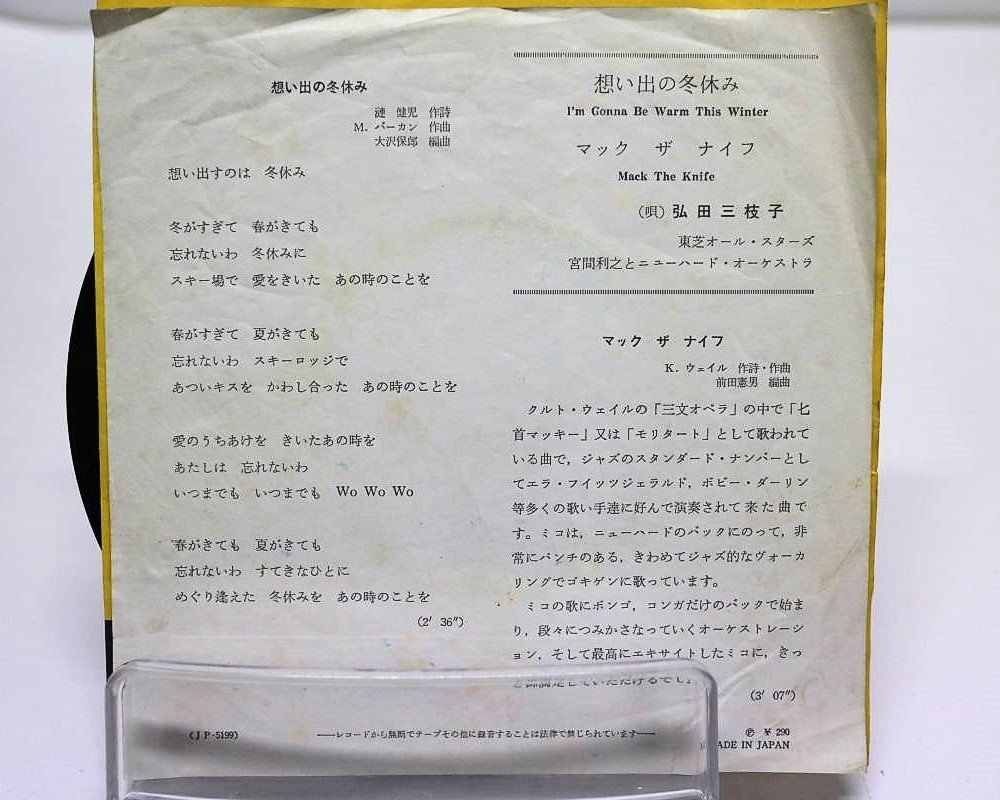 想い出の冬休み
漣 健児 作詩
M. バーカン 作曲
大沢保郎 編曲
想い出すのは 冬休み
冬がすぎて 春がきても
忘れないわ 冬休みに
スキー場で 愛をきいた あの時のことを
春がすぎて 夏がきても
忘れないわ スキーロッジで
あついキスを かわし合った あの時のことを
愛のうちあけを きいたあの時を
あたしは 忘れないわ
いつまでも いつまでも Wo Wo Wo
春がきても 夏がきても
忘れないわ すてきなひとに
めぐり逢えた 冬休みを あの時のことを
(2′ 36″)
(JP-5199)
想い出の冬休み
I'm Gonna Be Warm This Winter
マック ザ ナイフ
Mack The Knife
(唄) 弘田三枝子
東芝オール・スターズ
宮間利之とニューハード・オーケストラ
マック ザ ナイフ
K. ウェイル 作詩・作曲
前田憲男 編曲
クルト・ウェイルの「三文オペラ」の中で「匕
首マッキー」又は「モリタート」として歌われて
いる曲で，ジャズのスタンダード・ナンバーとし
てエラ・フイッツジェラルド，ボビー・ダーリン
等多くの歌い手達に好んで演奏されて来た曲で
す。ミコは，ニューハードのバックにのって，非
常にパンチのある，きわめてジャズ的なヴォーカ
リングでゴキゲンに歌っています。
ミコの歌にボンゴ，コンガだけのバックで始ま
り，段々につみかさなっていくオーケストレーシ
ョン，そして最高にエキサイトしたミコに，きっ
と御満足していただけるでしょ
(3′ 07″)
――レコードから無断でテープその他に録音することは法律で禁じられています――
Ⓟ ￥290
MADE IN JAPAN